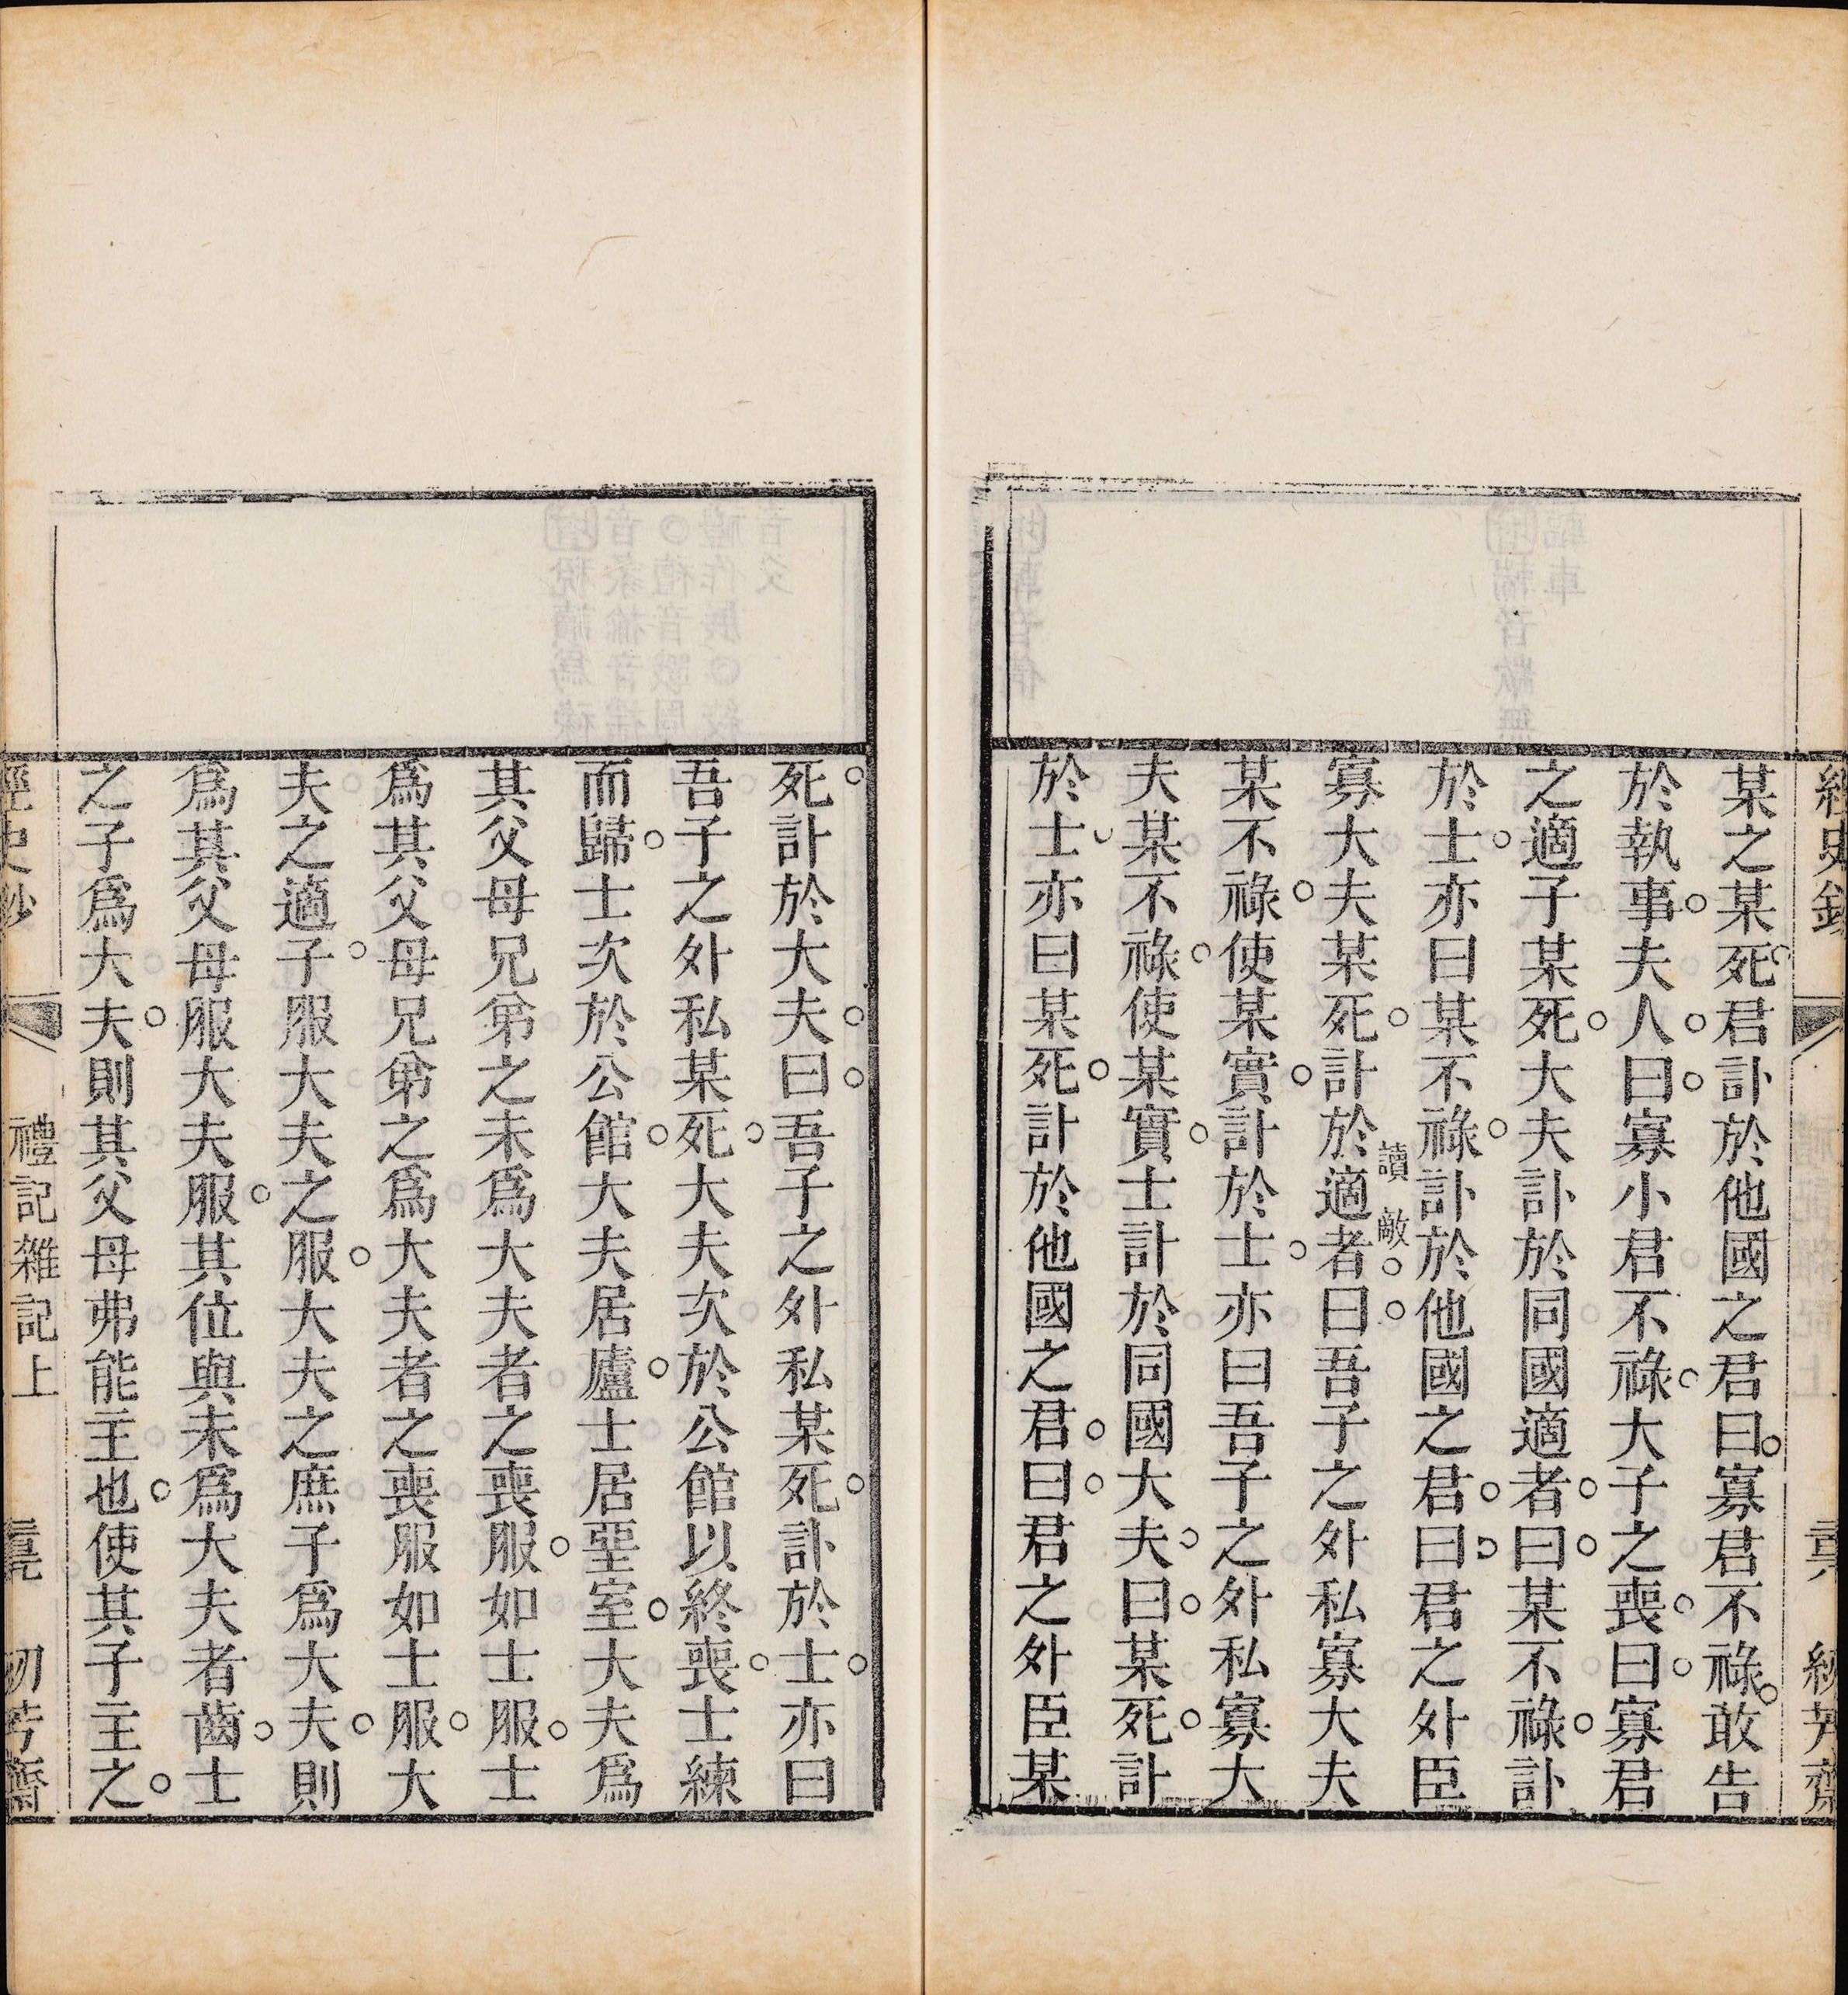 某之某死。君訃於他國之君曰。寡君不祿。敢告
於執事。夫人。曰。寡小君不祿。大子之喪。曰。寡君
之適子某死。大夫訃於同國適者。曰。某不祿。訃
於士。亦曰某不祿。訃於他國之君。曰。君之外臣
寡大夫某死。訃於適者。曰。吾子之外私寡大夫
讀敵
某不祿。使某實。訃於士。亦曰吾子之外私寡大
夫某不祿。使某實。士訃於同國大夫。曰。某死。訃
於士。亦曰某死。訃於他國之君。曰。君之外臣某
死。訃於大夫。曰。吾子之外私某死。訃於士。亦曰
吾子之外私某死。大夫次於公館以終喪。士練
而歸。士次於公館。大夫居廬。士居堊室。大夫爲
其父母兄弟之未爲大夫者之喪服。如士服。士
爲其父母兄弟之爲大夫者之喪服如士服。大
夫之適子。服大夫之服。大夫之庶子爲大夫。則
爲其父母服大夫服。其位與未爲大夫者齒。士
之子爲大夫。則其父母弗能主也。使其子主之。
經史鈔
禮記雜記上